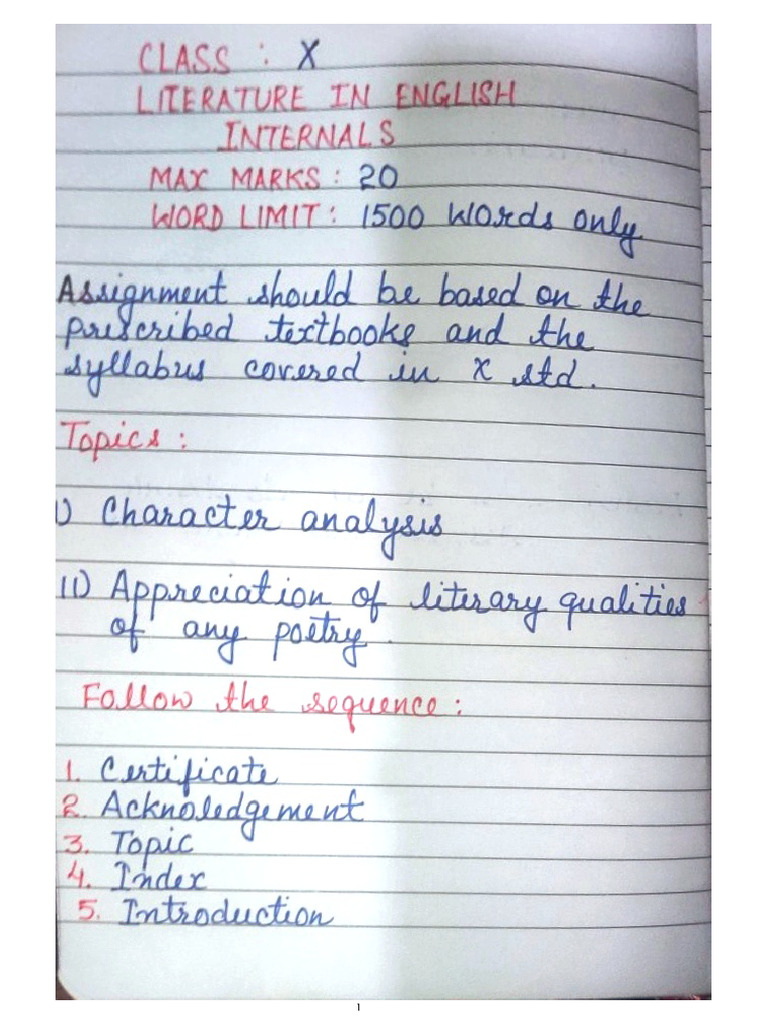 CLASS : X
LITERATURE IN ENGLISH
INTERNALS
MAX MARKS : 20
WORD LIMIT : 1500 Words only
Assignment should be based on the
prescribed textbooks and the
syllabus covered in X std.
Topics :
I) Character analysis
II) Appreciation of literary qualities
of any poetry.
Follow the sequence :
1. Certificate
2. Acknoledgement
3. Topic
4. Index
5. Introduction
1